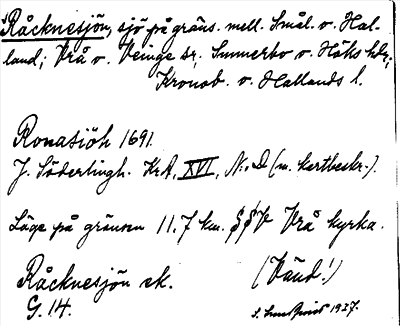 Råcknesjön, sjö på gräns. mell. Smål. o. Hal-
land; Vrå o. Veinge sr; Sunnerbo o. Höks hdr;
Kronob. o. Hallands l.
Ronasiöh 1691.
J. Söderlingh. KrA, XVI, N:o D (m. kartbeskr.).
Läge på gränsen 11.7 km. SSV Vrå kyrka.
Råcknesjön ek. (Vänd!)
G. 14. 1927.